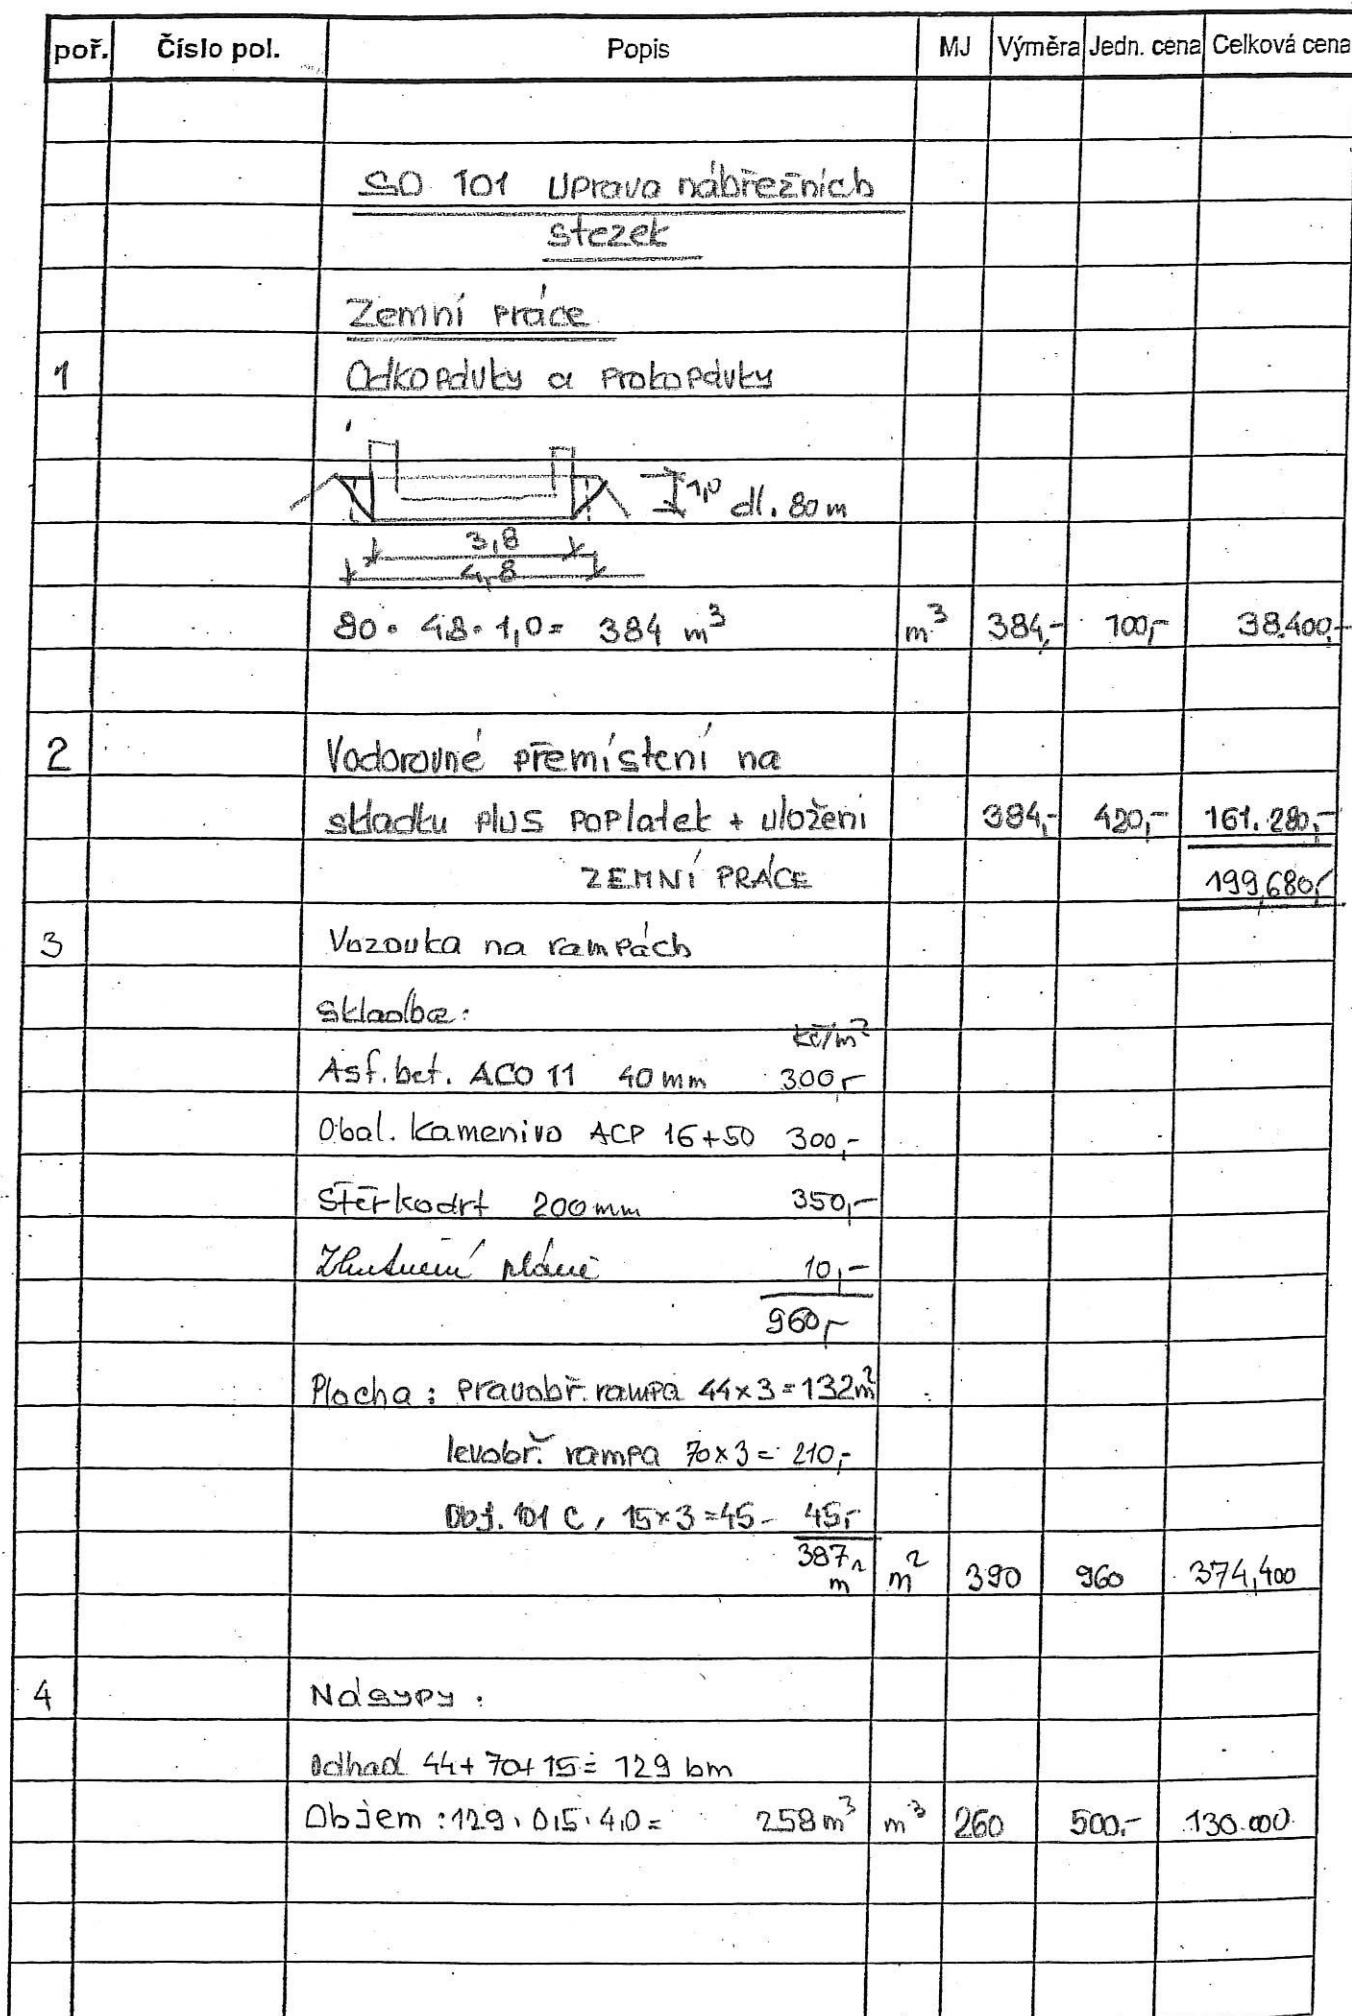 poř. Číslo pol. Popis MJ Výměra Jedn. cena Celková cena
SO 101 Uprava nábřežních
stezek
Zemní práce
1 Odkopávky a prokopávky
1,0 dl. 80 m
3,8
4,8
80 · 4,8 · 1,0 = 384 m³ m³ 384,- 100,- 38.400,-
2 Vodorovné přemístění na
skládku plus poplatek + uložení 384,- 420,- 161.280,-
ZEMNÍ PRÁCE 199.680,-
3 Vozovka na rampách
Skladba:
kč/m²
Asf. bet. ACO 11 40 mm 300,-
Obal. kamenivo ACP 16+50 300,-
Štěrkodrť 200 mm 350,-
Zhutnění pláně 10,-
960,-
Plocha: pravobř. rampa 44×3=132m²
levobř. rampa 70×3= 210,-
Obj. 101 C, 15×3=45- 45,-
387 m² m² 390 960 374,400
4 Násypy:
Odhad 44+70+15= 129 bm
Objem: 129 · 0,5 · 4,0 = 258 m³ m³ 260 500,- 130.000